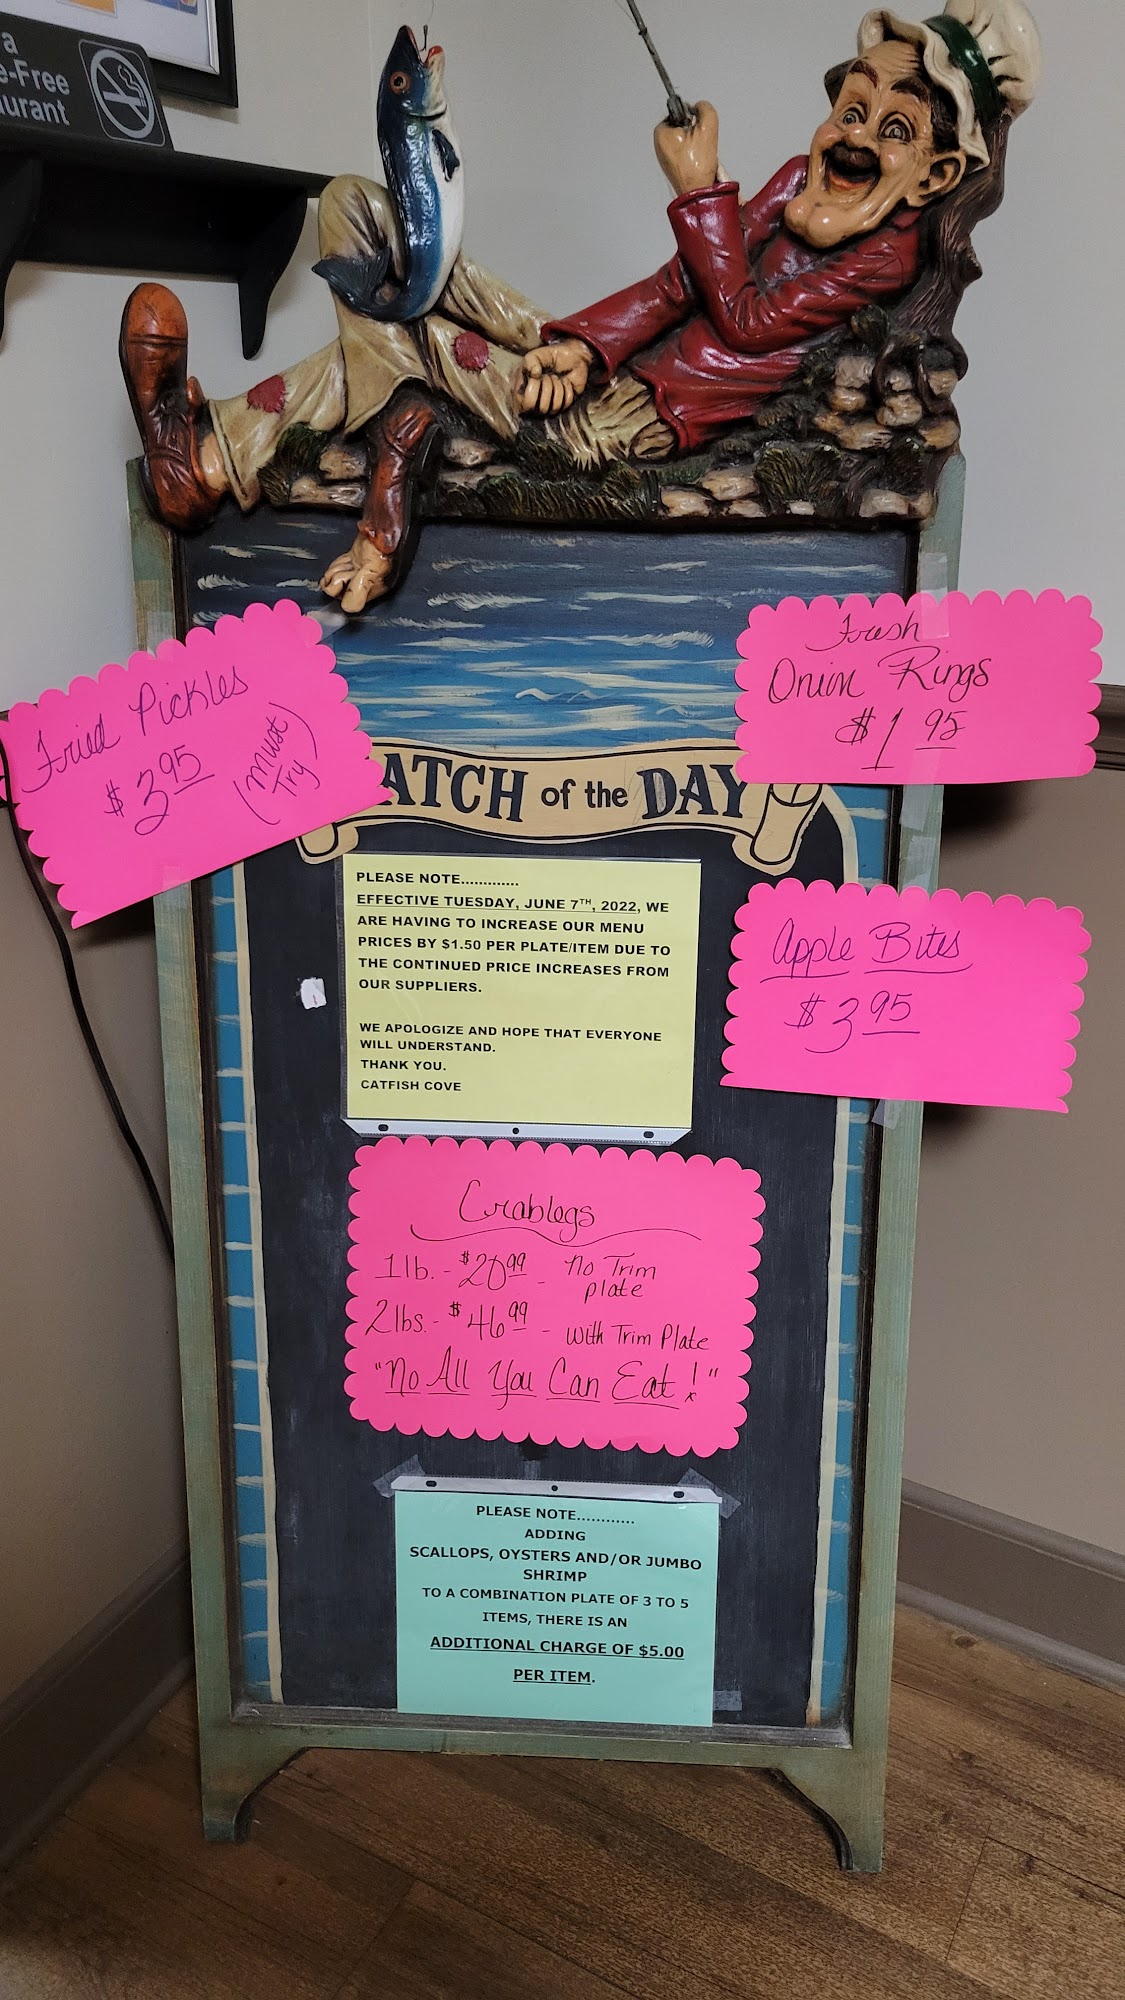 a
e-Free
urant
Fried Pickles
$3.95
(Must
Try)
Fresh
Onion Rings
$1.95
ATCH of the DAY
Apple Bites
$3.95
PLEASE NOTE.............
EFFECTIVE TUESDAY, JUNE 7TH, 2022, WE
ARE HAVING TO INCREASE OUR MENU
PRICES BY $1.50 PER PLATE/ITEM DUE TO
THE CONTINUED PRICE INCREASES FROM
OUR SUPPLIERS.
WE APOLOGIZE AND HOPE THAT EVERYONE
WILL UNDERSTAND.
THANK YOU.
CATFISH COVE
Crablegs
1 lb. - $20.99 - No Trim
plate
2 lbs. - $46.99 - with Trim Plate
"No All You Can Eat!"
PLEASE NOTE............
ADDING
SCALLOPS, OYSTERS AND/OR JUMBO
SHRIMP
TO A COMBINATION PLATE OF 3 TO 5
ITEMS, THERE IS AN
ADDITIONAL CHARGE OF $5.00
PER ITEM.